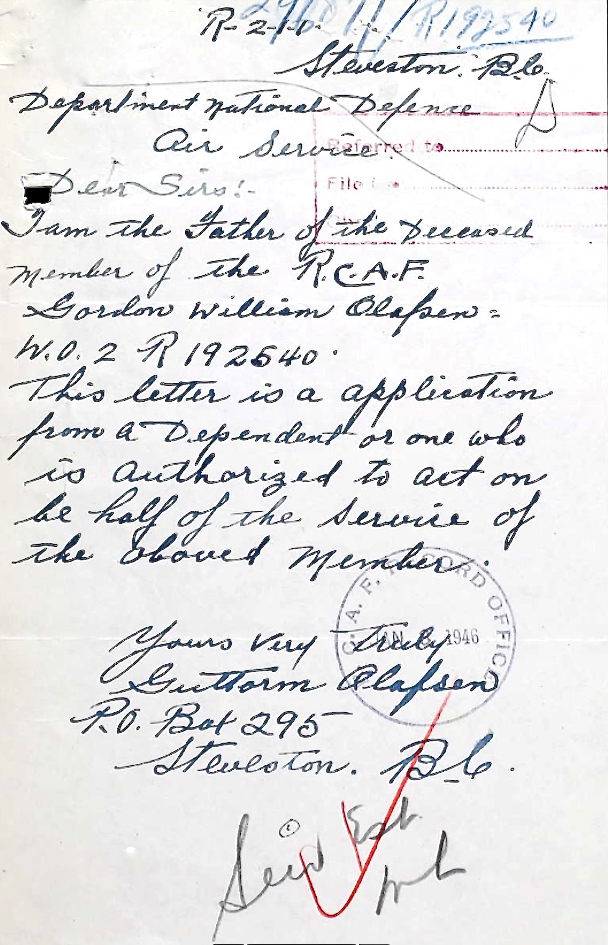 R-2-1-0.
R192540
Steveston. B.C.
Department National Defence
Air Service.
Referred to
File
Dear Sirs:-
I am the Father of the Deceased
Member of the R.C.A.F.
Gordon William Olafsen =
W.O. 2 R 192540.
This letter is a application
from a Dependent or one who
is authorized to act on
be half of the Service of
the aboved Member.
C. A. F. RECORD OFFICE
JAN 1946
Yours Very Truly
Guttorm Olafsen
P.O. Box 295
Steveston. B.C.
Est.